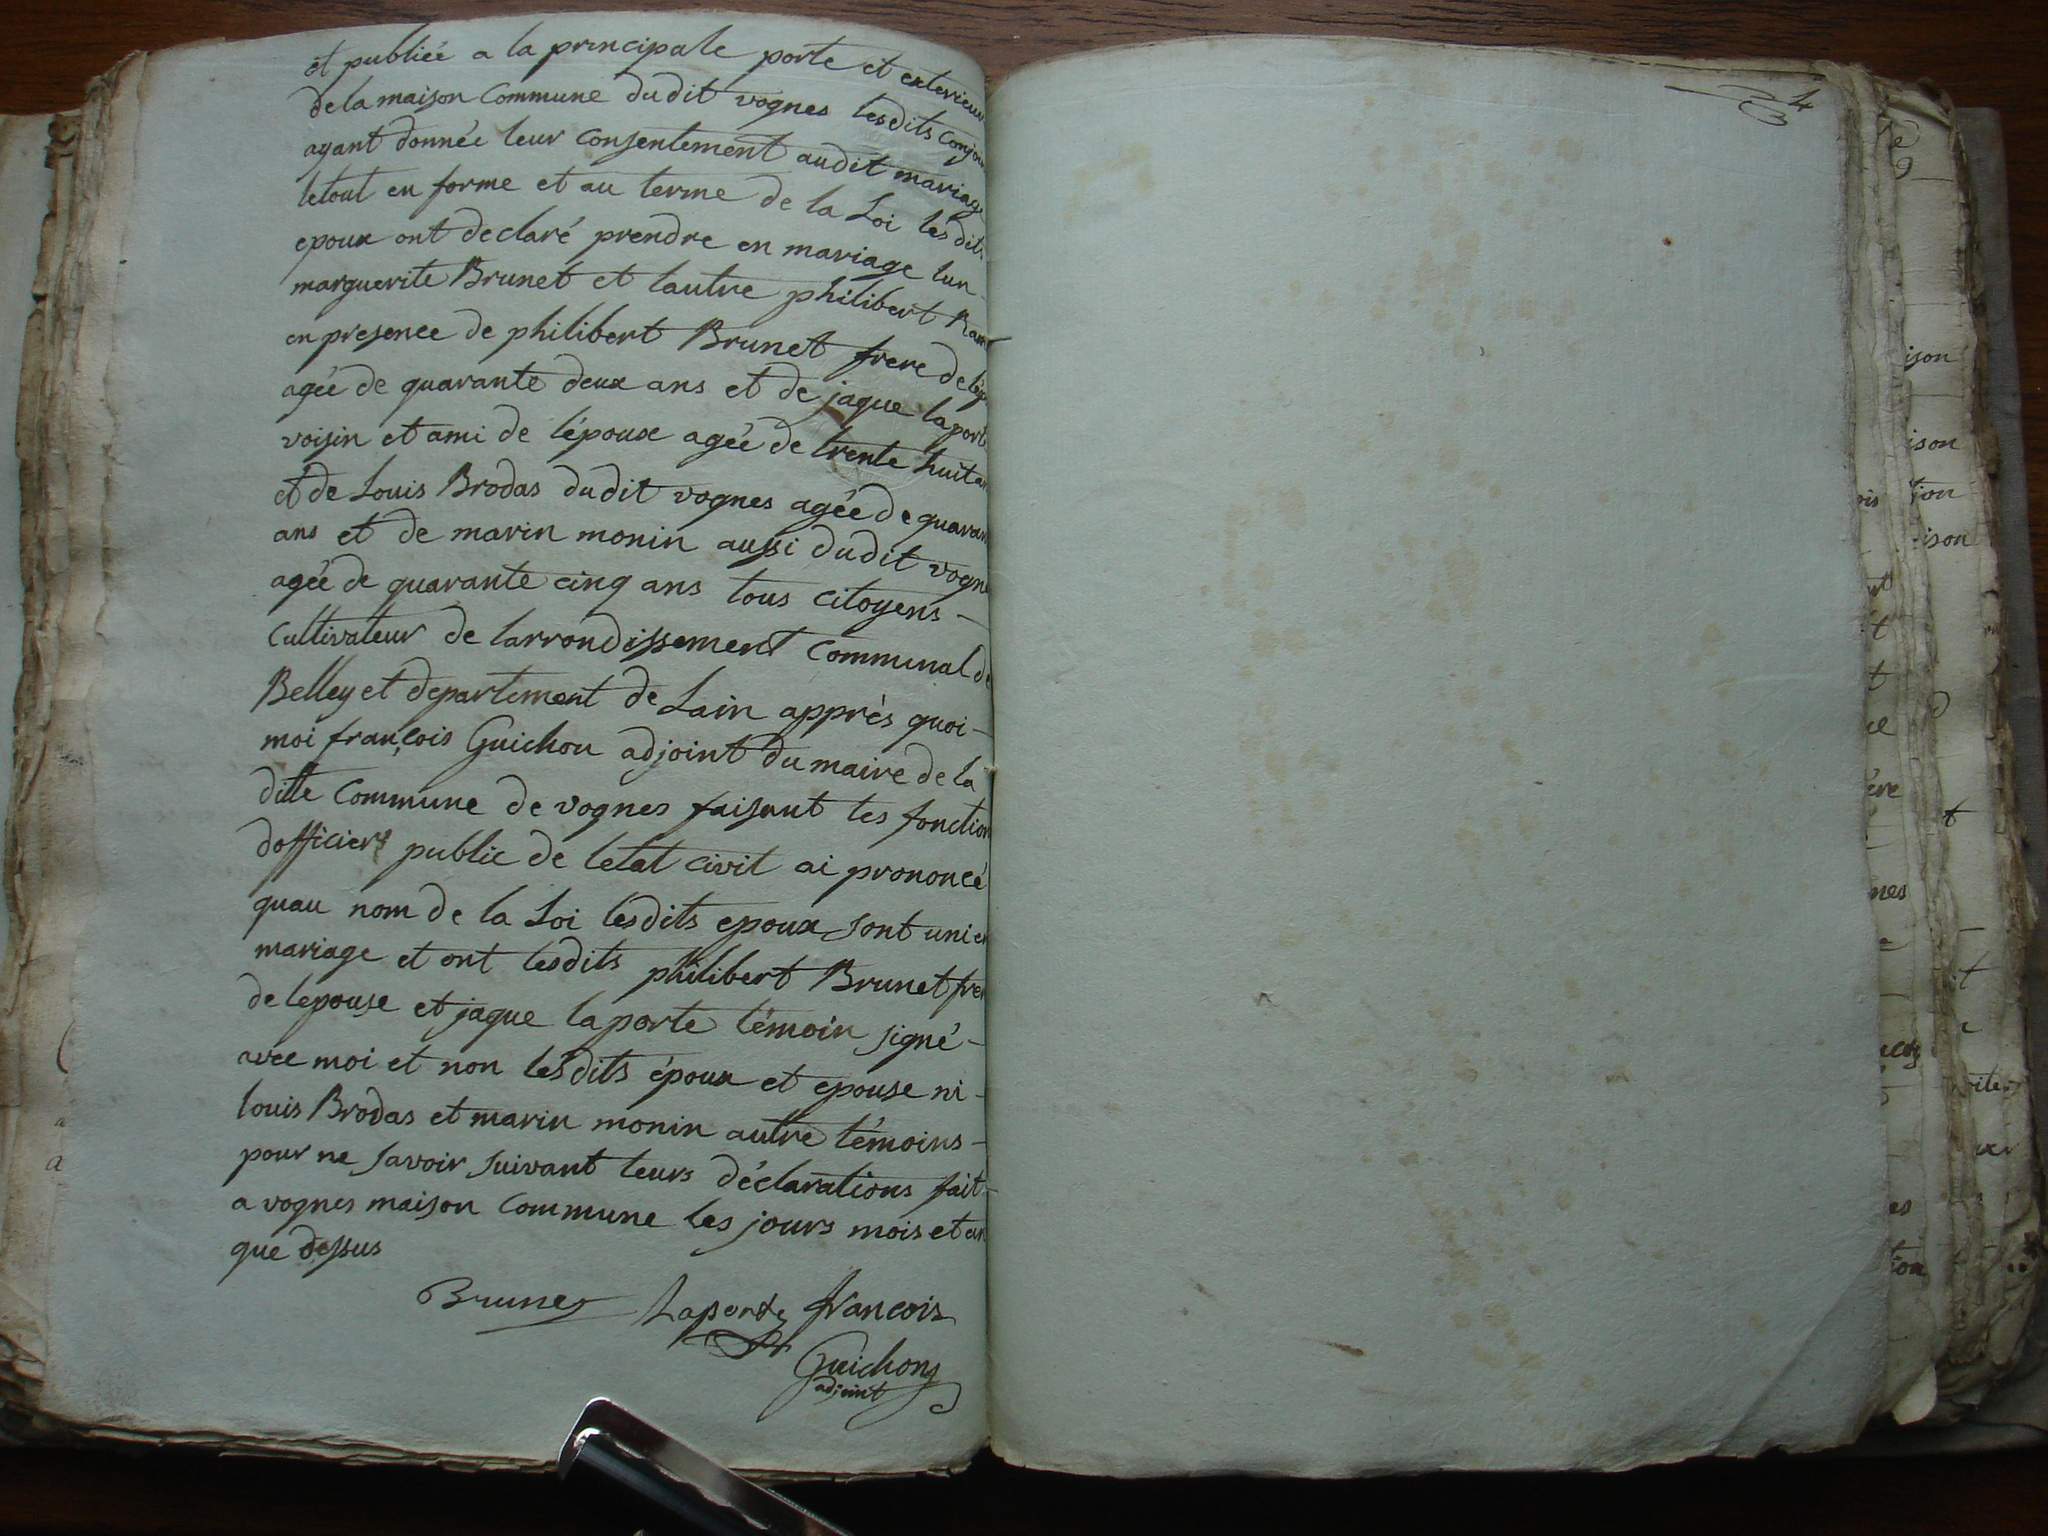 et publiée a la principale porte et exterieur
de la maison Commune dudit vognes lesdits conjoin
ayant donnée leur consentement audit mariage
letout en forme et au terme de la Loi lesdits
epoux ont declaré prendre en mariage lun
marguerite Brunet et lautre philibert
en presence de philibert Brunet frere de
agée de quarante deux ans et de jaque laporte
voisin et ami de lépouse agée de trente huit an
et de Louis Brodas dudit vognes agée de quaran
ans et de marin monin aussi dudit vogne
agée de quarante cinq ans tous citoyens -
Cultivateur de larrondissement Communal de
Belley et departement de Lain apprès quoi -
moi françois Guichon adjoint du maire de la
ditte Commune de vognes faisant les fonction
dofficiers public de letat civil ai prononcé
quau nom de la Loi lesdits epoux sont uni en
mariage et ont lesdits philibert Brunet frer
de lepouse et jaque laporte témoin signé -
avec moi et non lesdits époux et epouse ni -
louis Brodas et marin monin autre témoins -
pour ne savoir suivant leurs déclarations fait -
a vognes maison Commune les jours mois et an
que dessus
Brunet Laporte francois
Guichon
adjoint
4
ison
ison
tion
ison
nes
tion